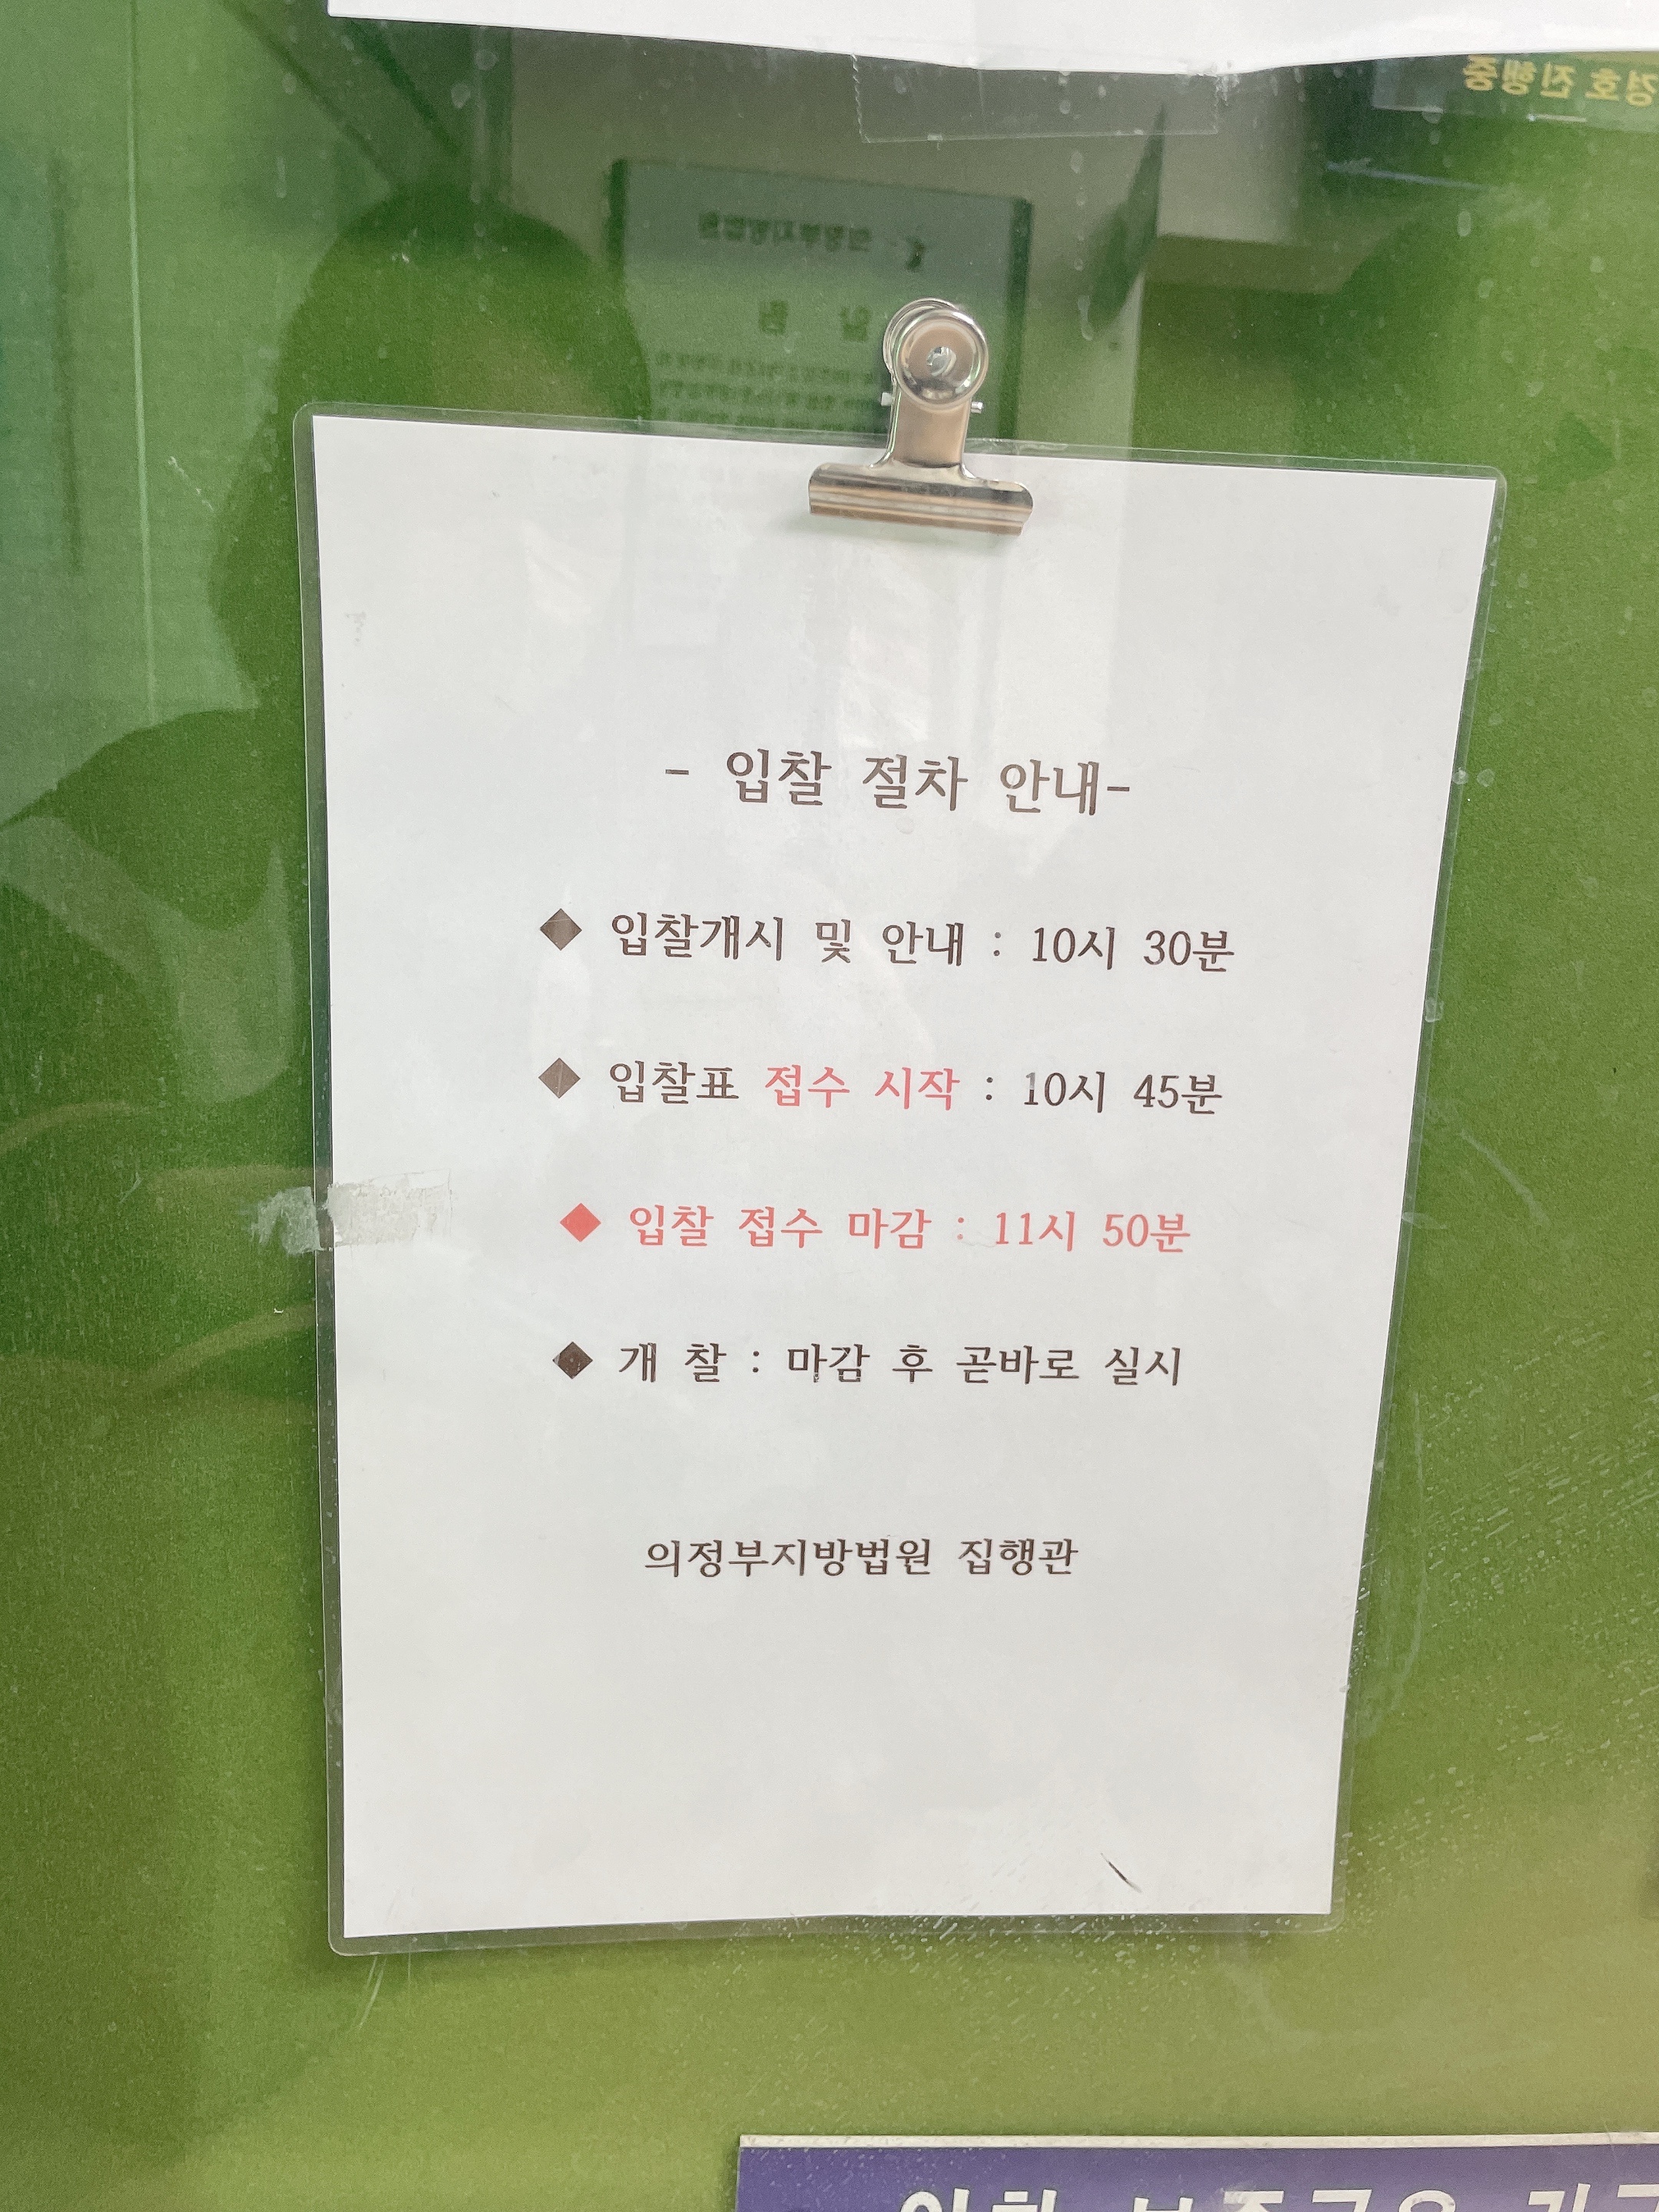 경호진행중
의정부지방법원
알 림
- 입찰 절차 안내-
◆ 입찰개시 및 안내 : 10시 30분
◆ 입찰표 접수 시작 : 10시 45분
◆ 입찰 접수 마감 : 11시 50분
◆ 개 찰 : 마감 후 곧바로 실시
의정부지방법원 집행관